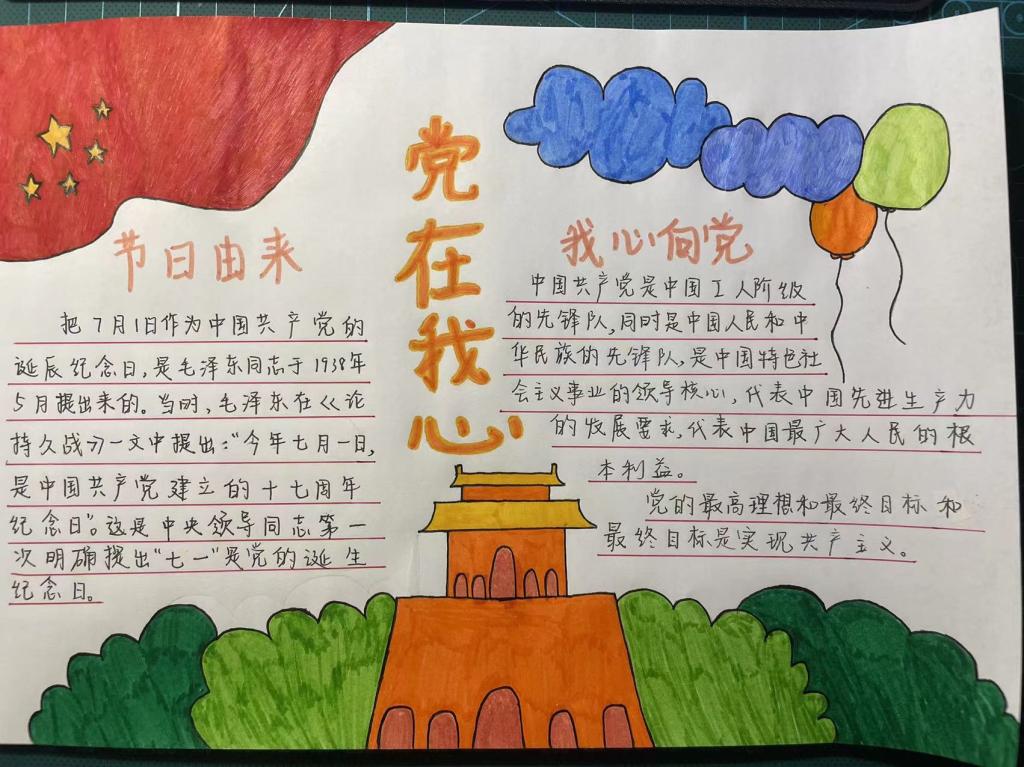 党在我心
节日由来
把7月1日作为中国共产党的
诞辰纪念日,是毛泽东同志于1938年
5月提出来的。当时,毛泽东在《论
持久战》一文中提出:"今年七月一日,
是中国共产党建立的十七周年
纪念日"。这是中央领导同志第一
次明确提出"七一"是党的诞生
纪念日。
我心向党
中国共产党是中国工人阶级
的先锋队,同时是中国人民和中
华民族的先锋队,是中国特色社
会主义事业的领导核心,代表中国先进生产力
的发展要求,代表中国最广大人民的根
本利益。
党的最高理想和最终目标和
最终目标是实现共产主义。